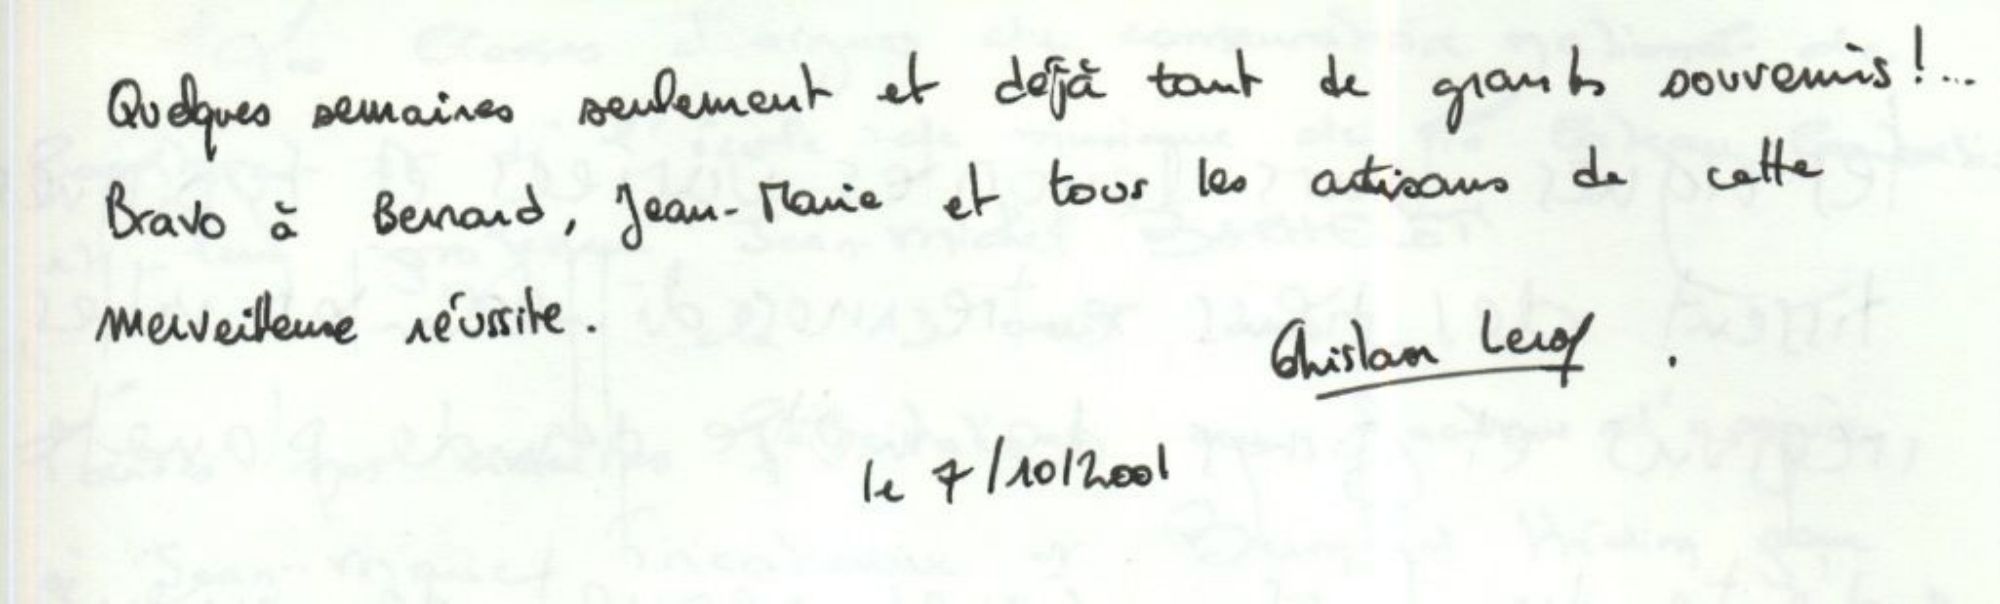 Quelques semaines seulement et déjà tant de grands souvenirs !...
Bravo à Bernard, Jean-Marie et tous les artisans de cette
merveilleuse réussite.
Ghislain Leroy.
le 7/10/2001